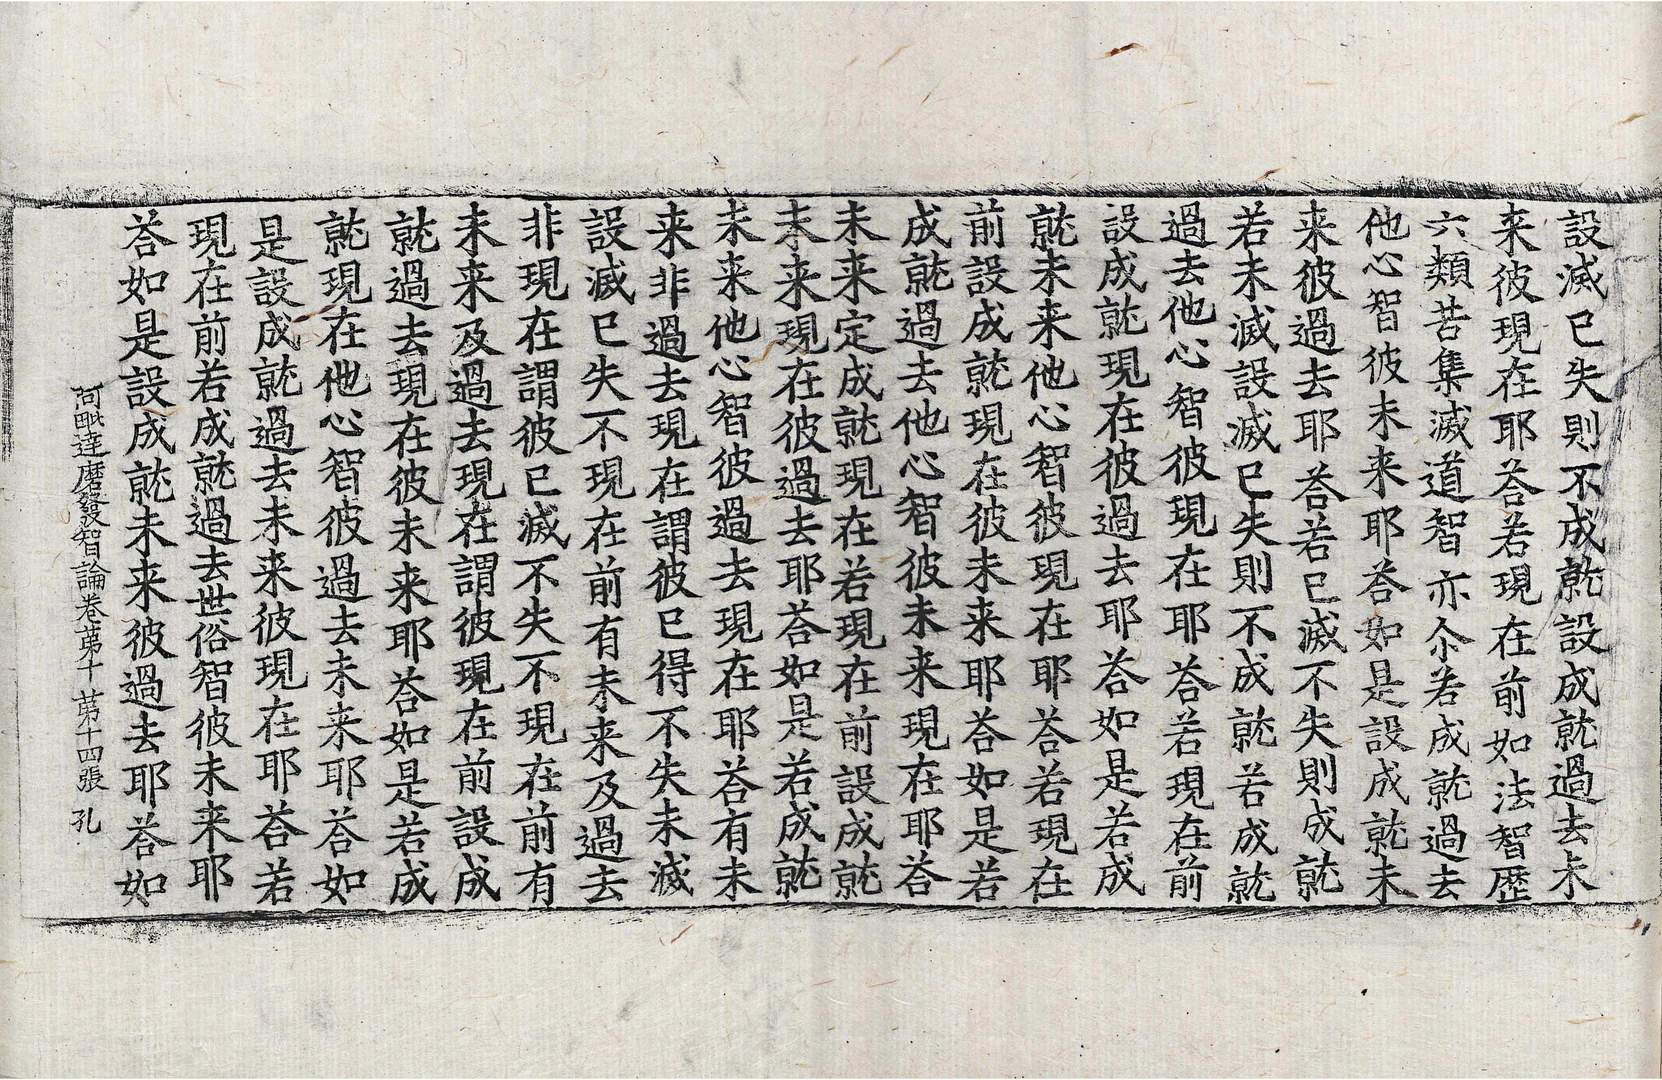 設滅已失則不成就設成就過去未
来彼現在耶荅若現在前如法智歷
六類苦集滅道智亦尒若成就過去
他心智彼未来耶荅如是設成就未
来彼過去耶荅若已滅不失則成就
若未滅設滅已失則不成就若成就
過去他心智彼現在耶荅若現在前
設成就現在彼過去耶荅如是若成
就未来他心智彼現在耶荅若現在
前設成就現在彼未来耶荅如是若
成就過去他心智彼未来現在耶荅
未来定成就現在若現在前設成就
未来現在彼過去耶荅如是若成就
未来他心智彼過去現在耶荅有未
来非過去現在謂彼已得不失未滅
設滅已失不現在前有未来及過去
非現在謂彼已滅不失不現在前有
未来及過去現在謂彼現在前設成
就過去現在彼未来耶荅如是若成
就現在他心智彼過去未来耶荅如
是設成就過去未来彼現在耶荅若
現在前若成就過去世俗智彼未来耶
荅如是設成就未来彼過去耶荅如
阿毗達磨發智論卷苐十 苐十四張 孔